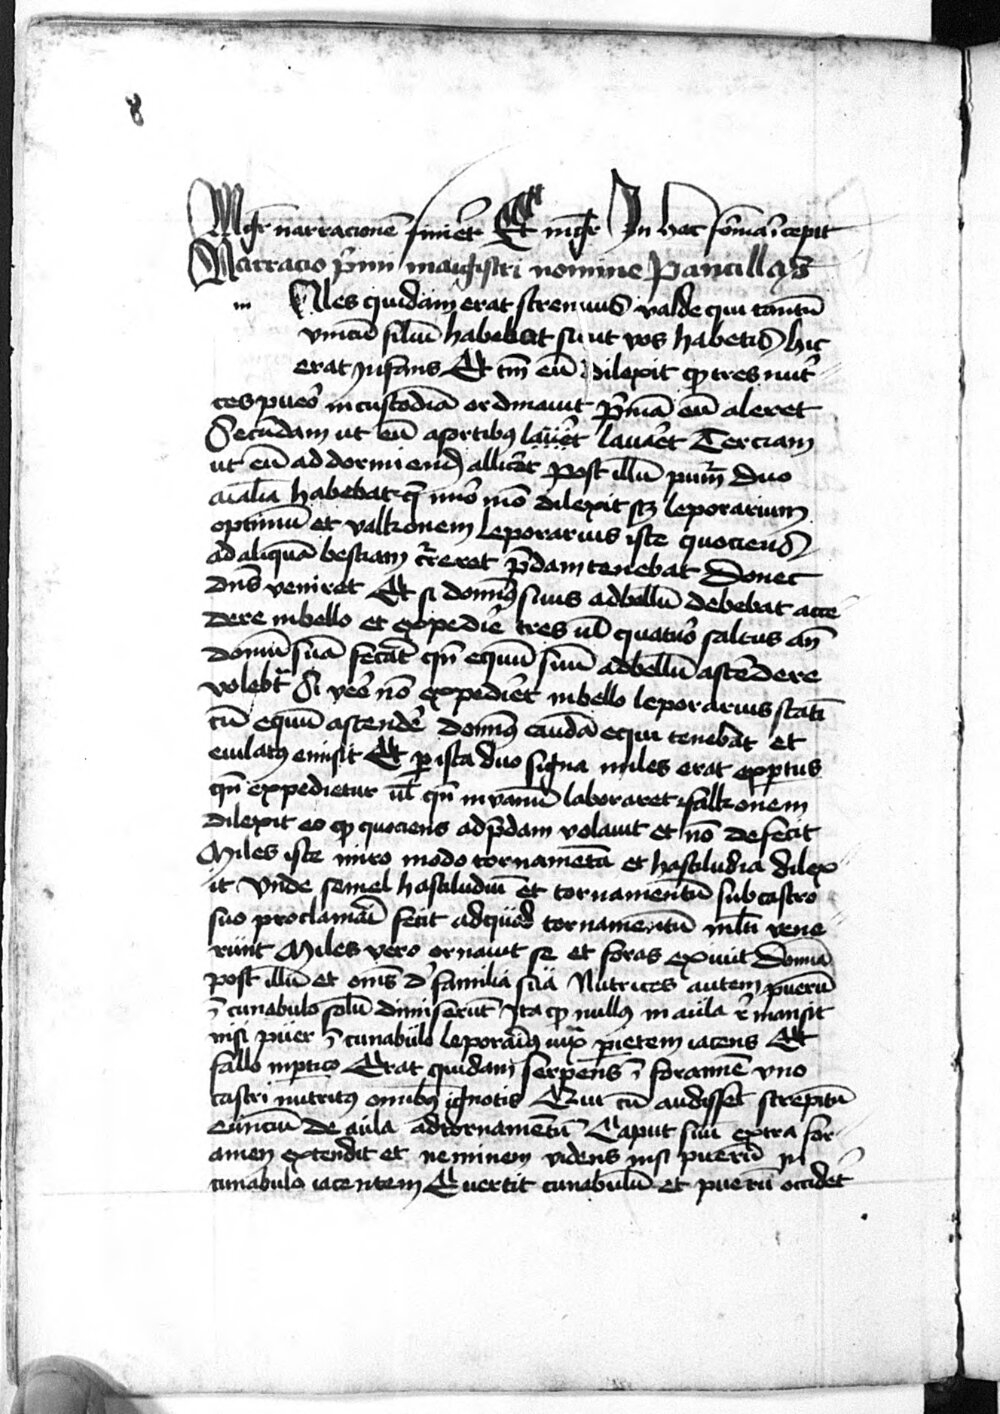 8
Mgr̄ narracionē finiēt Et mgr̄ In hac formā īcepit
Narracio p̄mi magistri nomine Pancillꝰ
m Iles quidam erat strenuus valde qui tantū
vnicū filiū habebat sicut vos habetis hic
erat infans Et tm̄ eū dilexit qͥ tres nut̄
ces pueō in custodiā ordinauit p̄mā eū aleret
Secūdam ut eū a sortibꝰ lauēt Terciam
ut eū ad dormiend̄ allicēt Post illū puerū duo
aīalia habebat q̄ miō mō dilexit sꝫ leporarium
optimū et valkonem Leporarius iste quociens
ad aliquā bestiam cr̄eret p̄dam tenebat Donec
dn̄s veniret Et si dominꝰ suus ad bellū debebat acce
dere in bello et expedīe tres ul̄ quatuō saltus an̄
dominū suū fecāt qn̄ equū suū ad bellū ascēdere
volebt̄ Si vēo nō expediēt in bello leporarius statī
cū equū ascendēt dominꝰ caudā equi tenebat et
eiulatꝰ emisit Et per ista duo signa miles erat expertus
qn̄ expedietur ul̄ qn̄ in vanū laboraret falkonem
dilexit eo qͥ quociens ad p̄dam volauit et nō defecit
Miles iste miro modo tornamētā et hastiludia dilex
it Vnde semel hastiludiū et tornamentū sub castro
suo proclamāī fecit ad quod tornamentū ml̄ti vene
runt Miles vero ornauit se et foras exiuit Domīā
post illū et om̄s d̄ familia sua Nutrices autem puerū
ī cunabulo solū dimiserūt Ita qͥ nullꝰ in aula r̄mansit
nisi puer ī cunabulo leporariꝰ iux̄ parietem iacens Et
falko in p̄tica Erat quidam serpens ī foramīe vno
castri nutritꝰ omībꝰ ignotis Qui cū audisset strepitū
eūnciū de aula ad tornamētū Caput suū extra for
amen extendit et neminem videns nisi puerū in
cunabulo iacentem Euertit cunabulū et puerū occidēt